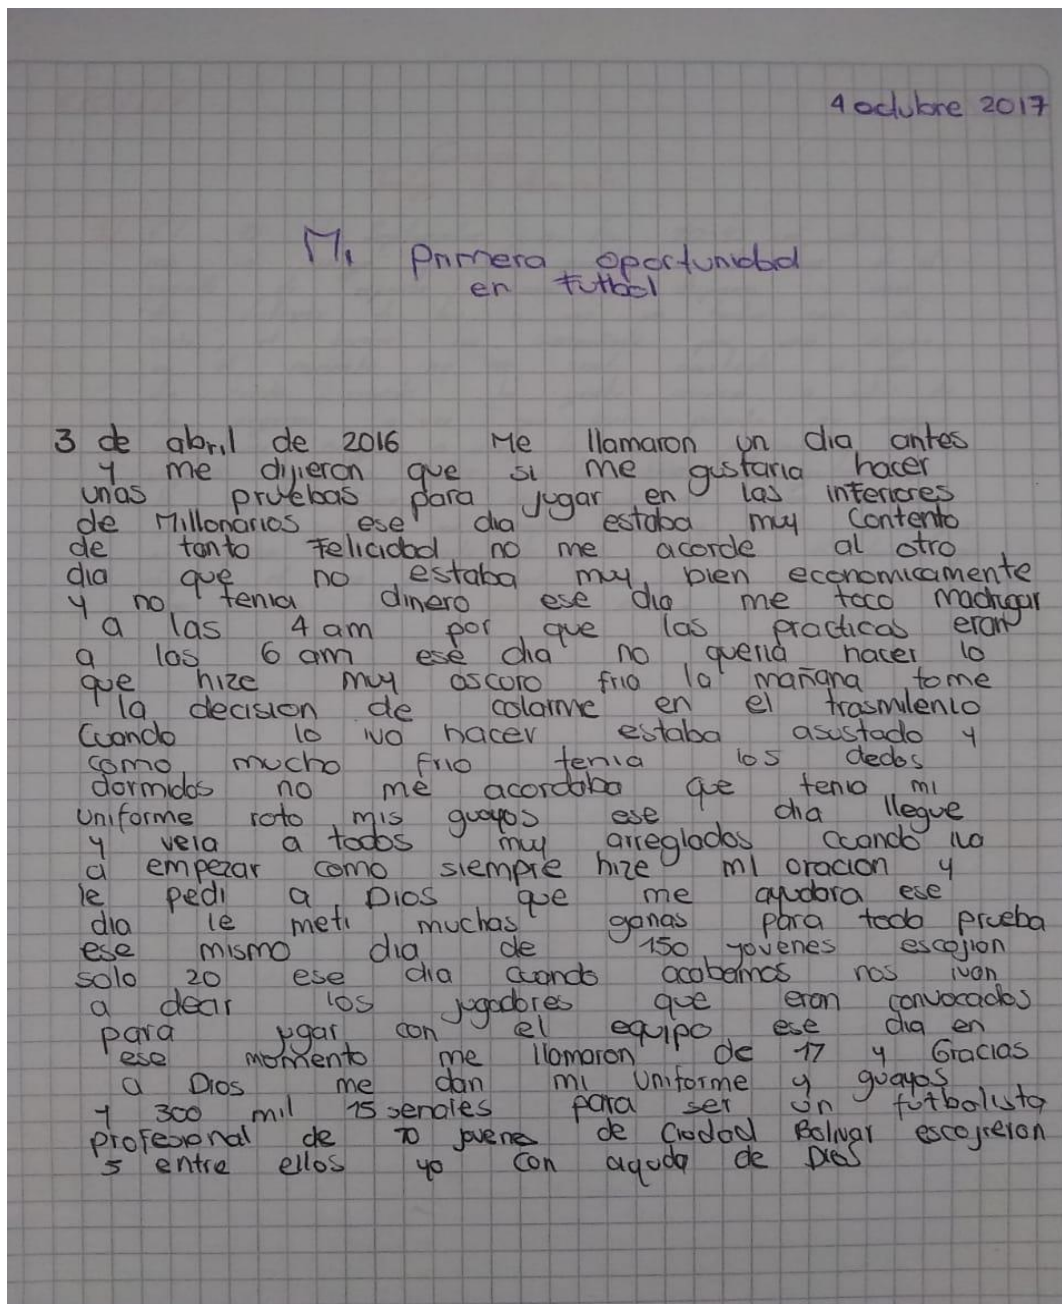 4 octubre 2017
Mi primera oportunidad
en futbol
3 de abril de 2016 Me llamaron un dia antes
y me dijieron que si me gustaria hacer
unas pruebas para jugar en las inferiores
de Millonarios ese dia estaba muy contento
de tanto felicidad no me acorde al otro
dia que no estaba muy bien economicamente
y no tenia dinero ese dia me toco madrugar
a las 4 am por que las practicas eran
a las 6 am ese dia no queria hacer lo
que hize muy oscuro frio la mañana tome
la decision de colarme en el trasmilenio
Cuando lo iva hacer estaba asustado y
como mucho frio tenia los dedos
dormidos no me acordaba que tenia mi
uniforme roto mis guayos ese dia llegue
y veia a todos muy arreglados cuando iva
a empezar como siempre hize mi oracion y
le pedi a Dios que me ayudara ese
dia le meti muchas ganas para toda prueba
ese mismo dia de 150 jovenes escojion
solo 20 ese dia cuando acabamos nos ivan
a decir los jugadores que eran convocados
para jugar con el equipo ese dia en
ese momento me llamaron de 17 y Gracias
a Dios me dan mi uniforme y guayos
y 300 mil 15 senales para ser un futbolista
profesional de 70 jovenes de Ciudad Bolivar escojieron
5 entre ellos yo con ayuda de Dios